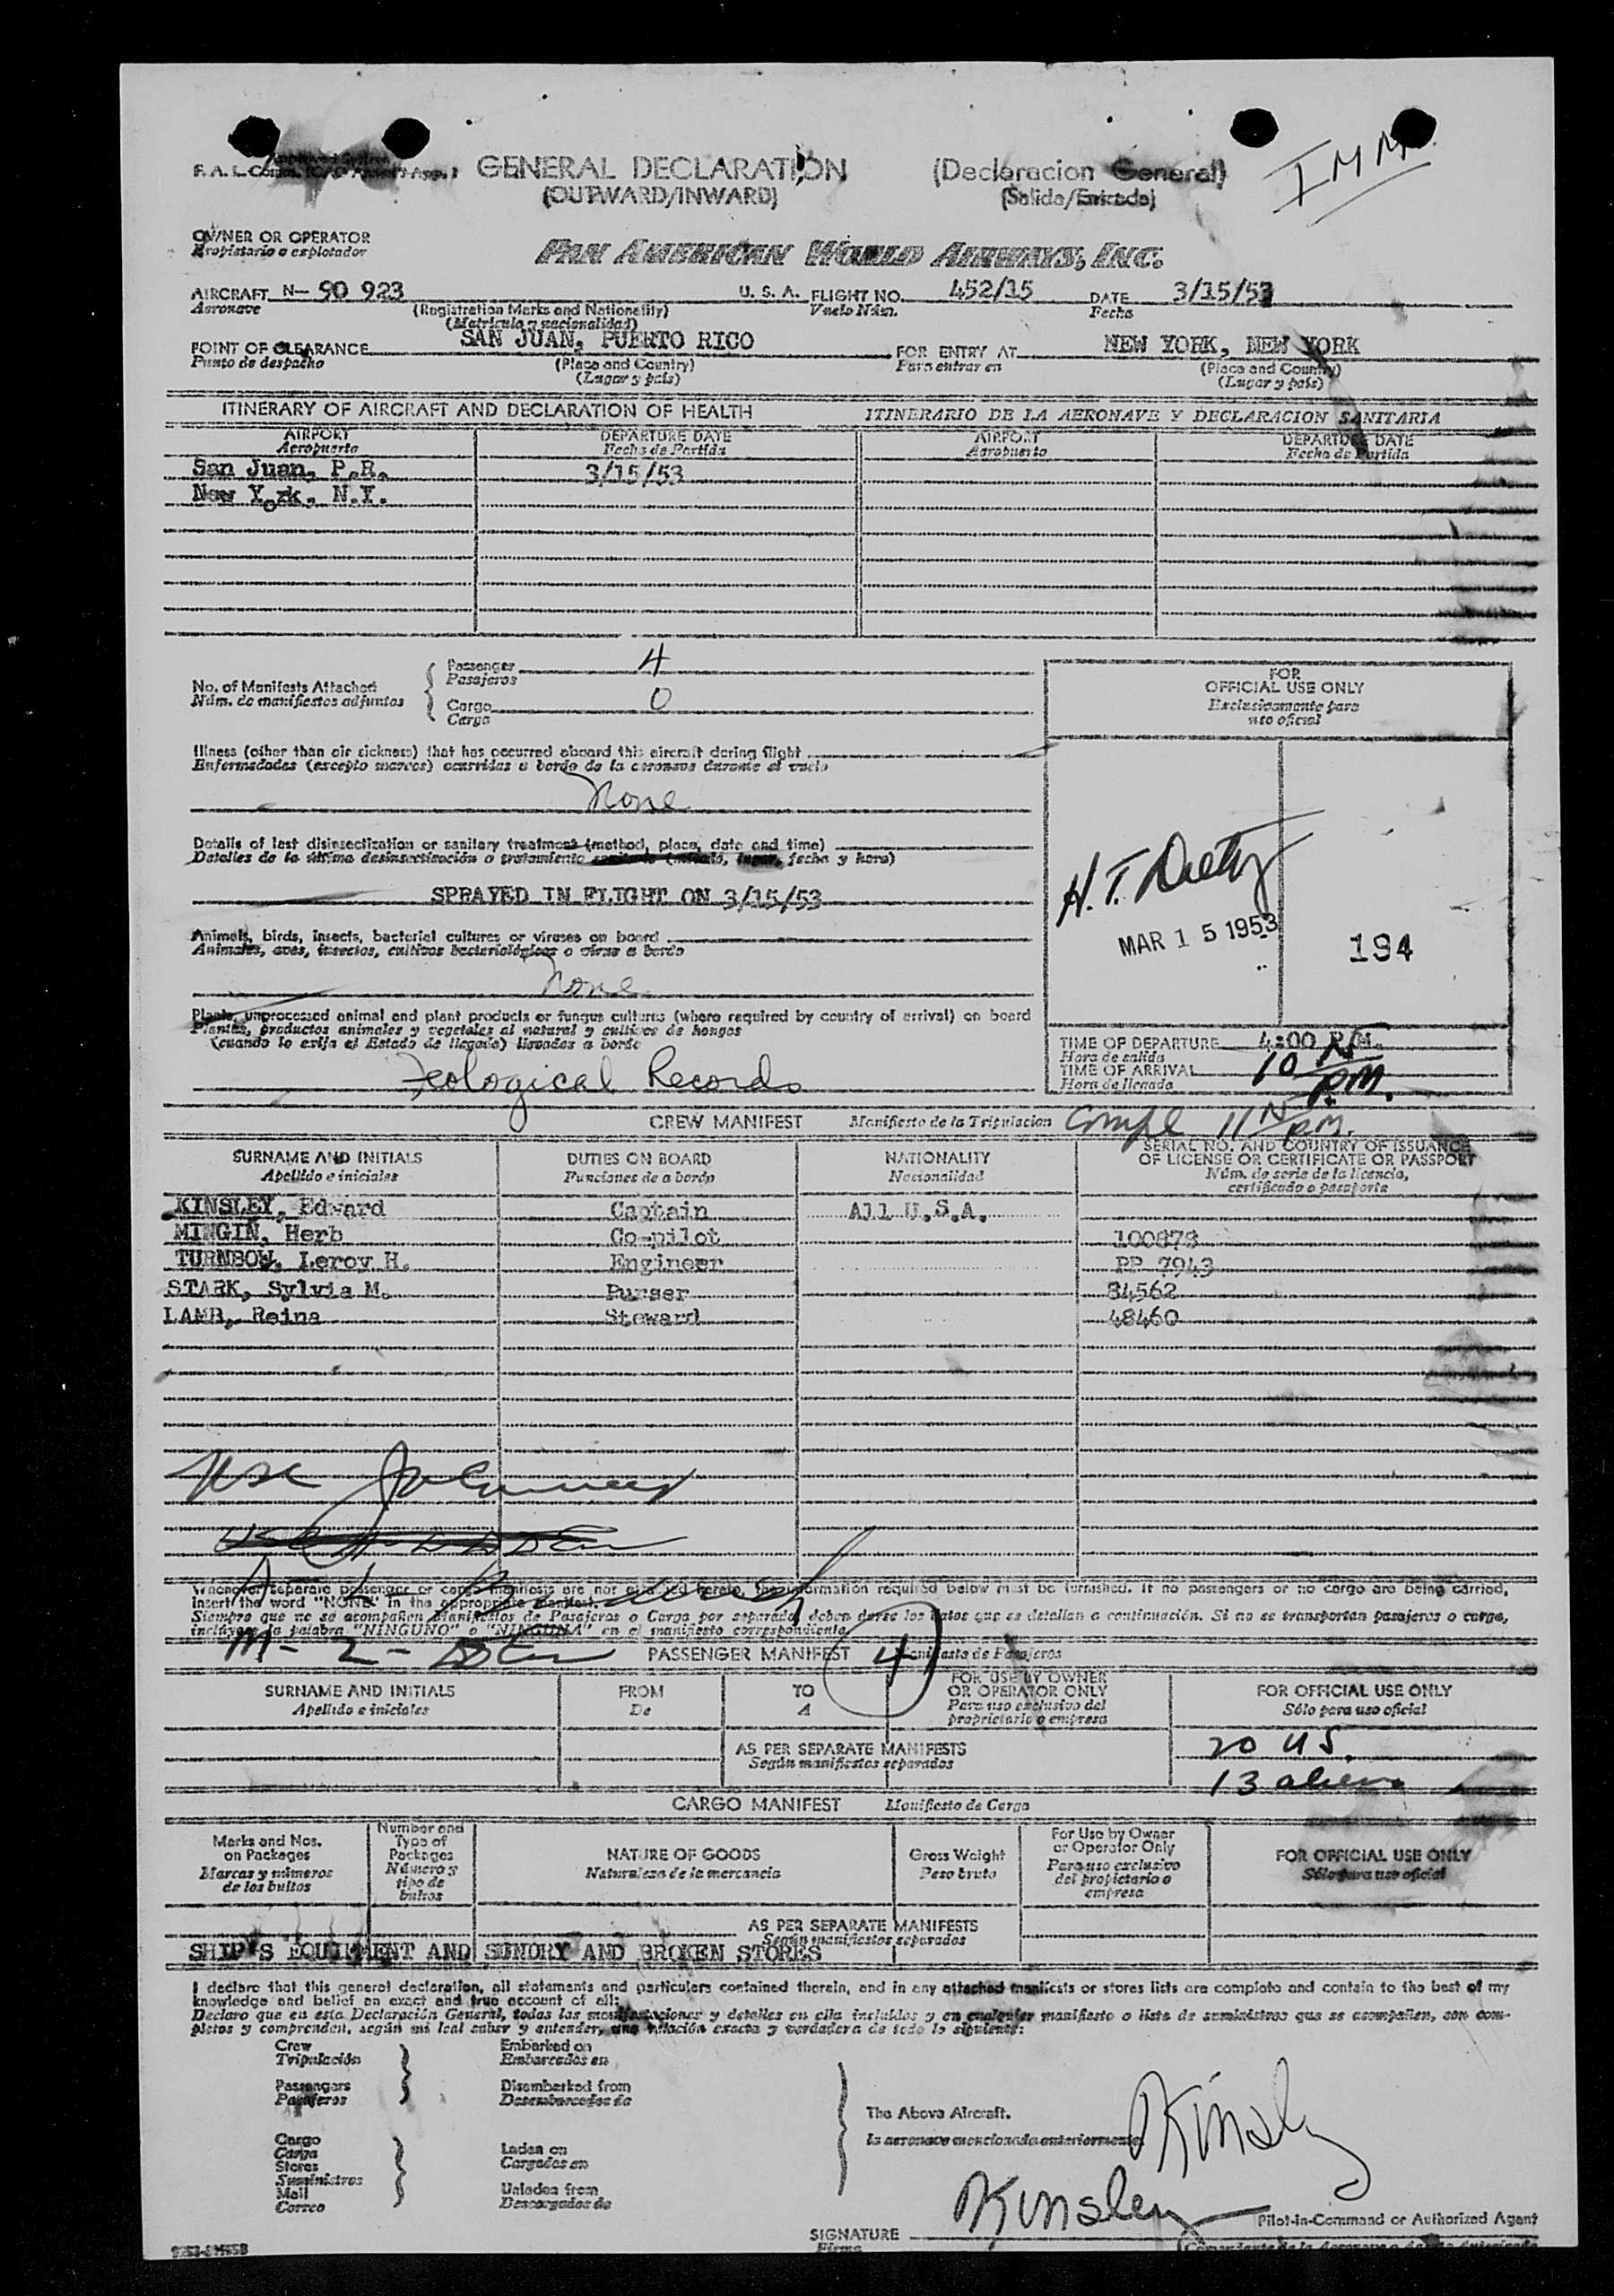 GENERAL DECLARATION (Declaracion General)
(OUTWARD/INWARD) (Salida/Entrada)
IMM
OWNER OR OPERATOR
Propietario o explotador
PAN AMERICAN WORLD AIRWAYS, INC.
AIRCRAFT N- 90 923 U. S. A. FLIGHT NO. 452/15 DATE 3/15/53
Aeronave (Registration Marks and Nationality) Vuelo Núm. Fecha
(Matricula y nacionalidad)
POINT OF CLEARANCE SAN JUAN, PUERTO RICO FOR ENTRY AT NEW YORK, NEW YORK
Punto de despacho (Place and Country) Para entrar en (Place and Country)
(Lugar y país) (Lugar y país)
ITINERARY OF AIRCRAFT AND DECLARATION OF HEALTH ITINERARIO DE LA AERONAVE Y DECLARACION SANITARIA
AIRPORT DEPARTURE DATE AIRPORT DEPARTURE DATE
Aeropuerto Fecha de Partida Aeropuerto Fecha de Partida
San Juan, P.R. 3/15/53
New York, N.Y.
No. of Manifests Attached
Núm. de manifiestos adjuntos
Passenger 4
Pasajeros
Cargo 0
Carga
FOR
OFFICIAL USE ONLY
Exclusivamente para
uso oficial
Illness (other than air sickness) that has occurred aboard this aircraft during flight
Enfermedades (excepto mareos) ocurridas a bordo de la aeronave durante el vuelo
None
Details of last disinsectization or sanitary treatment (method, place, date and time)
Detalles de la última desinsectización o tratamiento sanitario (método, lugar, fecha y hora)
SPRAYED IN FLIGHT ON 3/15/53
H. T.
MAR 15 1953
194
Animals, birds, insects, bacterial cultures or viruses on board
Animales, aves, insectos, cultivos bacteriológicos o virus a bordo
None
Plants, unprocessed animal and plant products or fungus cultures (where required by country of arrival) on board
Plantas, productos animales y vegetales al natural y cultivos de hongos
(cuando lo exija el Estado de llegada) llevados a bordo
Zeological Records
TIME OF DEPARTURE 4:00 P.M.
Hora de salida
TIME OF ARRIVAL 10 PM.
Hora de llegada
CREW MANIFEST Manifiesto de la Tripulacion Compl 11 PM.
SURNAME AND INITIALS DUTIES ON BOARD NATIONALITY SERIAL NO. AND COUNTRY OF ISSUANCE
OF LICENSE OR CERTIFICATE OR PASSPORT
Apellido e iniciales Funciones de a bordo Nacionalidad Núm. de serie de la licencia,
certificado o pasaporte
KINSLEY, Edward Captain All U.S.A.
MINGIN, Herb Co-pilot 100878
TURNBOW, Leroy H. Engineer PP 7943
STARK, Sylvia M. Purser 84562
LAMB, Reina Steward 48460
Whenever separate passenger or cargo manifests are not attached hereto, the information required below must be furnished. If no passengers or no cargo are being carried,
insert the word "NONE" in the appropriate manifest.
Siempre que no se acompañen Manifiestos de Pasajeros o Carga por separado, deben darse los datos que se detallan a continuación. Si no se transportan pasajeros o carga,
inclúyase la palabra "NINGUNO" o "NINGUNA" en el manifiesto correspondiente.
M- 2-
PASSENGER MANIFEST 4 Manifiesto de Pasajeros
SURNAME AND INITIALS FROM TO FOR USE BY OWNER
OR OPERATOR ONLY FOR OFFICIAL USE ONLY
Apellido e iniciales De A Para uso exclusivo del
propietario o empresa Sólo para uso oficial
AS PER SEPARATE MANIFESTS
Según manifiestos separados
20 US.
13 aliens
CARGO MANIFEST Manifiesto de Carga
Marks and Nos.
on Packages
Marcas y números
de los bultos
Number and
Type of
Packages
Número y
tipo de
bultos
NATURE OF GOODS
Naturaleza de la mercancía
Gross Weight
Peso bruto
For Use by Owner
or Operator Only
Para uso exclusivo
del propietario o
empresa
FOR OFFICIAL USE ONLY
Sólo para uso oficial
AS PER SEPARATE MANIFESTS
Según manifiestos separados
SHIP'S EQUIPMENT AND SUNDRY AND BROKEN STORES
I declare that this general declaration, all statements and particulars contained therein, and in any attached manifests or stores lists are complete and contain to the best of my
knowledge and belief an exact and true account of all:
Declaro que en esta Declaración General, todas las manifestaciones y detalles en ella incluídos y en cualquier manifiesto o lista de suministros que se acompañen, son com-
pletos y comprenden, según mi leal saber y entender, una relación exacta y verdadera de todo lo siguiente:
Crew Embarked on
Tripulación Embarcados en
Passengers Disembarked from
Pasajeros Desembarcados de
The Above Aircraft.
la aeronave mencionada anteriormente.
Cargo
Carga
Stores
Suministros
Mail
Correo
Laden on
Cargados en
Unladen from
Descargados de
Kinsly
Kinsley
SIGNATURE Pilot-in-Command or Authorized Agent
Firma